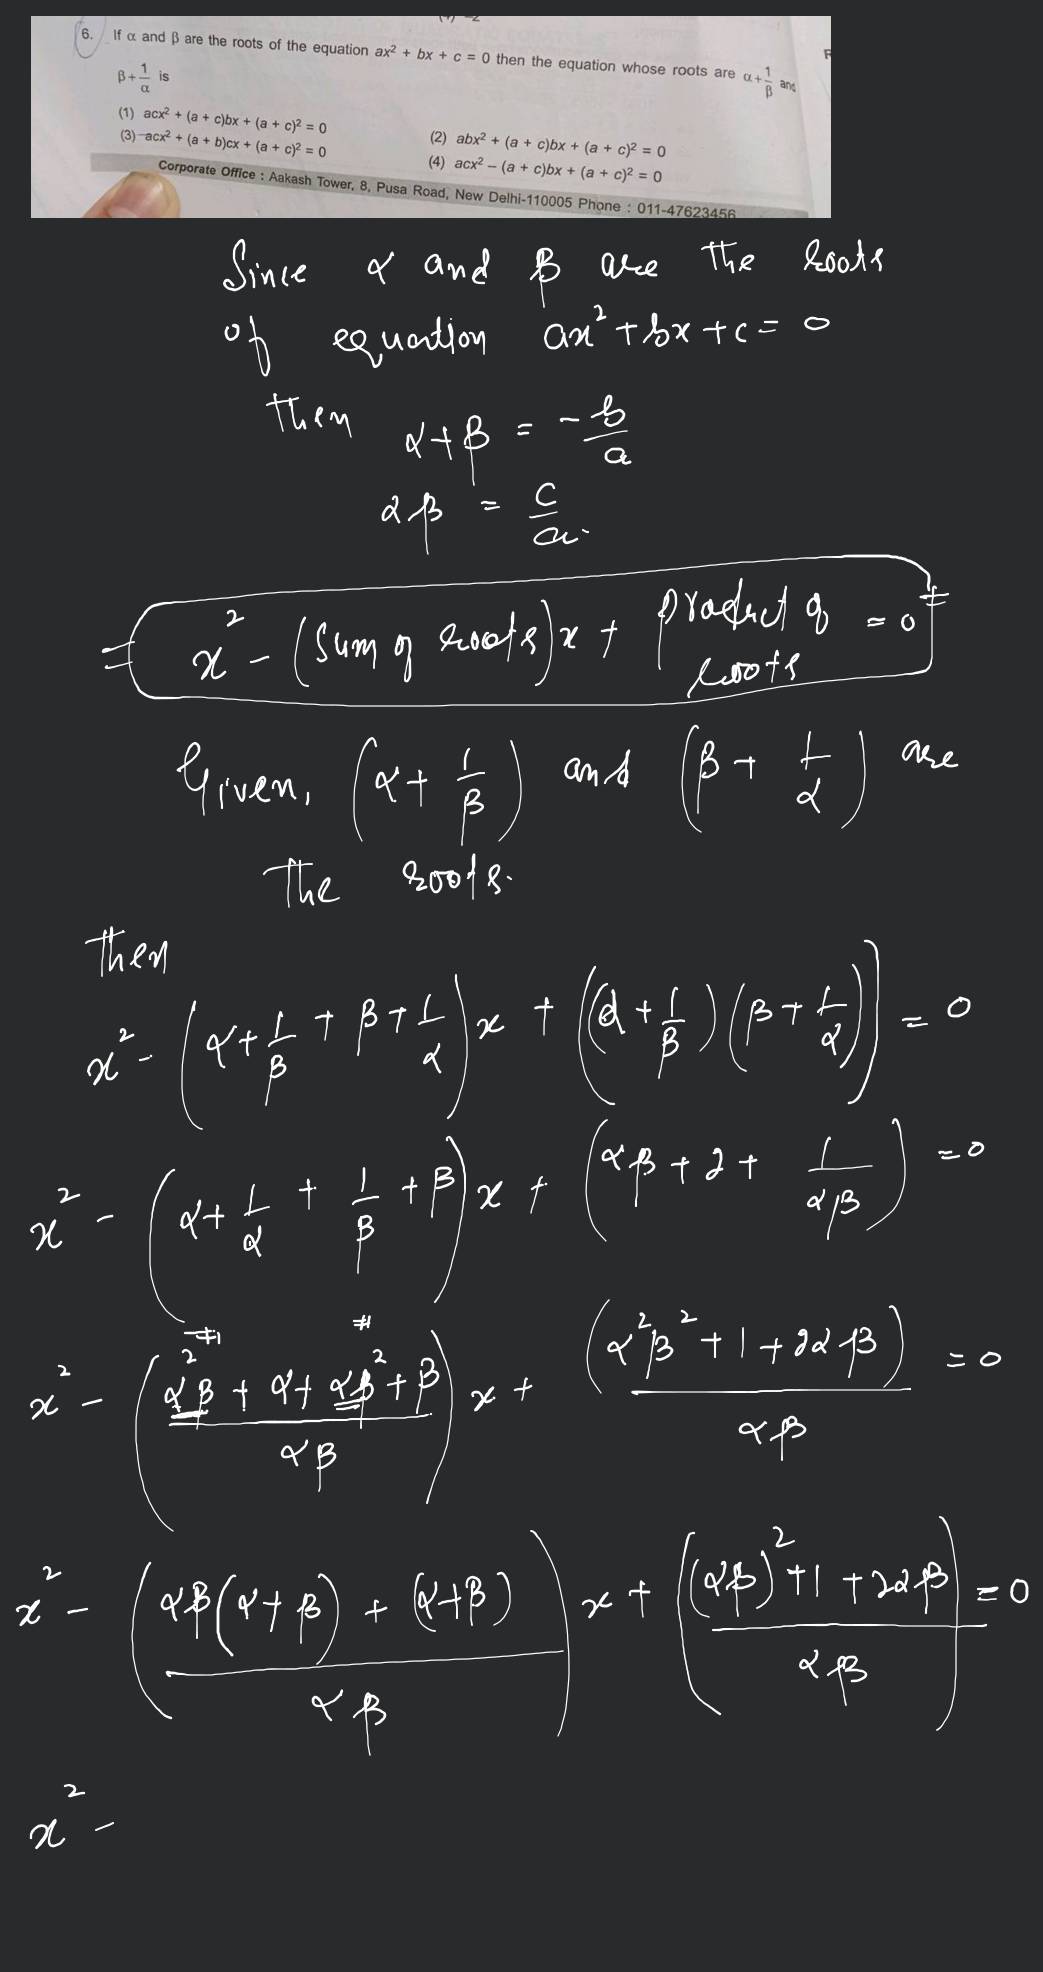 6. If α and β are the roots of the equation ax² + bx + c = 0 then the equation whose roots are α+1/β and
β+1/α is
(1) acx² + (a + c)bx + (a + c)² = 0
(2) abx² + (a + c)bx + (a + c)² = 0
(3) acx² + (a + b)cx + (a + c)² = 0
(4) acx² – (a + c)bx + (a + c)² = 0
Corporate Office : Aakash Tower, 8, Pusa Road, New Delhi-110005 Phone : 011-47623456
Since α and β are the roots
of equation ax² + bx + c = 0
then α+β = -b/a
αβ = c/a.
x² - (Sum of roots)x + product of roots = 0
Given, (α + 1/β) and (β + 1/α) are
the roots.
then
x² - (α + 1/β + β + 1/α)x + ((α + 1/β)(β + 1/α)) = 0
x² - (α + 1/α + 1/β + β)x + (αβ + 2 + 1/αβ) = 0
x² - ((α²β + α + αβ² + β)/αβ)x + (α²β² + 1 + 2αβ)/αβ = 0
x² - ((αβ(α + β) + (α+β))/αβ)x + (((αβ)² + 1 + 2αβ)/αβ) = 0
x² -